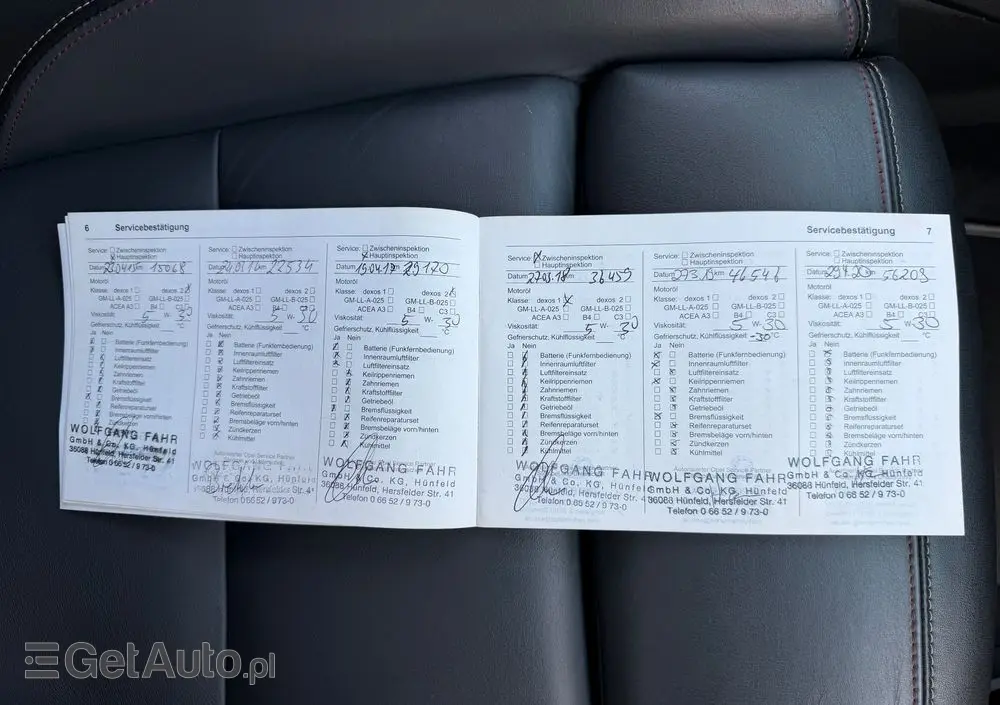 6 Servicebestätigung
Service: Zwischeninspektion
Hauptinspektion
Datum 15068
Motoröl
Klasse: dexos 1 dexos 2
GM-LL-A-025 GM-LL-B-025
ACEA A3 B4 C3
Viskosität: 5 W- 30
Gefrierschutz, Kühlflüssigkeit °C
Ja Nein
Batterie (Funkfernbedienung)
Innenraumluftfilter
Luftfiltereinsatz
Keilrippenriemen
Zahnriemen
Kraftstofffilter
Getriebeöl
Bremsflüssigkeit
Reifenreparaturset
Bremsbeläge vorn/hinten
Zündkerzen
WOLFGANG FAHR
GmbH & Co. KG, Hünfeld
36088 Hünfeld, Hersfelder Str. 41
Telefon 0 66 52 / 9 73-0
Service: Zwischeninspektion
Hauptinspektion
Datum km 22534
Motoröl
Klasse: dexos 1 dexos 2
GM-LL-A-025 GM-LL-B-025
ACEA A3 B4 C3
Viskosität: 5 W- 30
Gefrierschutz, Kühlflüssigkeit °C
Ja Nein
Batterie (Funkfernbedienung)
Innenraumluftfilter
Luftfiltereinsatz
Keilrippenriemen
Zahnriemen
Kraftstofffilter
Getriebeöl
Bremsflüssigkeit
Reifenreparaturset
Bremsbeläge vorn/hinten
Zündkerzen
Kühlmittel
Autorisierter Opel Service Partner
WOLFGANG FAHR
GmbH & Co. KG, Hünfeld
36088 Hünfeld, Hersfelder Str. 41
Telefon 0 66 52 / 9 73-0
Service: Zwischeninspektion
Hauptinspektion
Datum 19.04.17 km 29170
Motoröl
Klasse: dexos 1 dexos 2
GM-LL-A-025 GM-LL-B-025
ACEA A3 B4 C3
Viskosität: 5 W- 30
Gefrierschutz, Kühlflüssigkeit °C
Ja Nein
Batterie (Funkfernbedienung)
Innenraumluftfilter
Luftfiltereinsatz
Keilrippenriemen
Zahnriemen
Kraftstofffilter
Getriebeöl
Bremsflüssigkeit
Reifenreparaturset
Bremsbeläge vorn/hinten
Zündkerzen
Kühlmittel
WOLFGANG FAHR
GmbH & Co. KG, Hünfeld
36088 Hünfeld, Hersfelder Str. 41
Telefon 0 66 52 / 9 73-0
Servicebestätigung 7
Service: Zwischeninspektion
Hauptinspektion
Datum 27.03.18 km 36459
Motoröl
Klasse: dexos 1 dexos 2
GM-LL-A-025 GM-LL-B-025
ACEA A3 B4 C3
Viskosität: 5 W- 30
Gefrierschutz, Kühlflüssigkeit °C
Ja Nein
Batterie (Funkfernbedienung)
Innenraumluftfilter
Luftfiltereinsatz
Keilrippenriemen
Zahnriemen
Kraftstofffilter
Getriebeöl
Bremsflüssigkeit
Reifenreparaturset
Bremsbeläge vorn/hinten
Zündkerzen
Kühlmittel
WOLFGANG FAHR
GmbH & Co. KG, Hünfeld
36088 Hünfeld, Hersfelder Str. 41
Telefon 0 66 52 / 9 73-0
Service: Zwischeninspektion
Hauptinspektion
Datum km 46546
Motoröl
Klasse: dexos 1 dexos 2
GM-LL-A-025 GM-LL-B-025
ACEA A3 B4 C3
Viskosität: 5 W- 30
Gefrierschutz, Kühlflüssigkeit -30 °C
Ja Nein
Batterie (Funkfernbedienung)
Innenraumluftfilter
Luftfiltereinsatz
Keilrippenriemen
Zahnriemen
Kraftstofffilter
Getriebeöl
Bremsflüssigkeit
Reifenreparaturset
Bremsbeläge vorn/hinten
Zündkerzen
Kühlmittel
Autorisierter Opel Service Partner
WOLFGANG FAHR
GmbH & Co. KG, Hünfeld
36088 Hünfeld, Hersfelder Str. 41
Telefon 0 66 52 / 9 73-0
Service: Zwischeninspektion
Hauptinspektion
Datum km 56209
Motoröl
Klasse: dexos 1 dexos 2
GM-LL-A-025 GM-LL-B-025
ACEA A3 B4 C3
Viskosität: 5 W- 30
Gefrierschutz, Kühlflüssigkeit °C
Ja Nein
Batterie (Funkfernbedienung)
Innenraumluftfilter
Luftfiltereinsatz
Keilrippenriemen
Zahnriemen
Kraftstofffilter
Getriebeöl
Bremsflüssigkeit
Reifenreparaturset
Bremsbeläge vorn/hinten
Zündkerzen
Kühlmittel
WOLFGANG FAHR
GmbH & Co. KG, Hünfeld
36088 Hünfeld, Hersfelder Str. 41
Telefon 0 66 52 / 9 73-0
GetAuto.pl